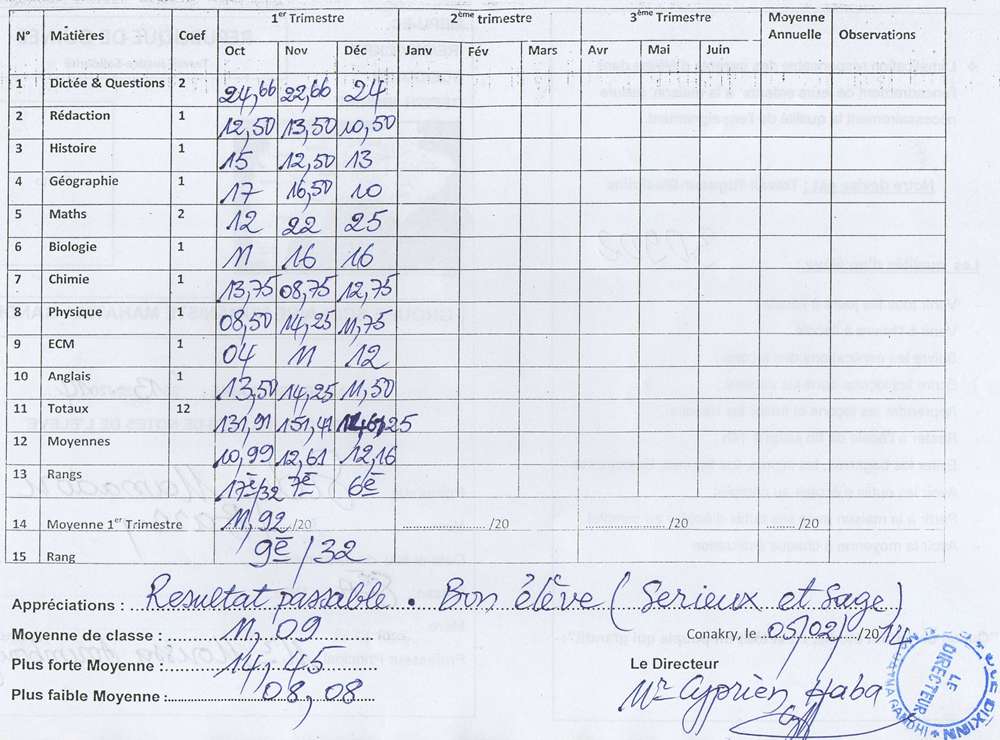 N° Matières Coef 1er Trimestre 2ème trimestre 3ème Trimestre Moyenne Annuelle Observations
Oct Nov Déc Janv Fév Mars Avr Mai Juin
1 Dictée & Questions 2 24,66 22,66 24
2 Rédaction 1 12,50 13,50 10,50
3 Histoire 1 15 12,50 13
4 Géographie 1 17 16,50 10
5 Maths 2 12 22 25
6 Biologie 1 11 16 16
7 Chimie 1 13,75 08,75 12,75
8 Physique 1 08,50 14,25 11,75
9 ECM 1 04 11 12
10 Anglais 1 13,50 14,25 11,50
11 Totaux 12 131,91 151,41 146,25
12 Moyennes 10,99 12,61 12,16
13 Rangs 17è/32 7è 6è
14 Moyenne 1er Trimestre 11,92 /20 /20 /20 /20
15 Rang 9è /32
Appréciations : Resultat passable. Bon élève (Serieux et Sage)
Moyenne de classe : 11,09 Conakry, le 05/02/2014
Plus forte Moyenne : 14,45 Le Directeur
Plus faible Moyenne : 08,08 Mr Cyprien Haba
LE DIRECTEUR
MAHATMA GANDHI
DIXINN